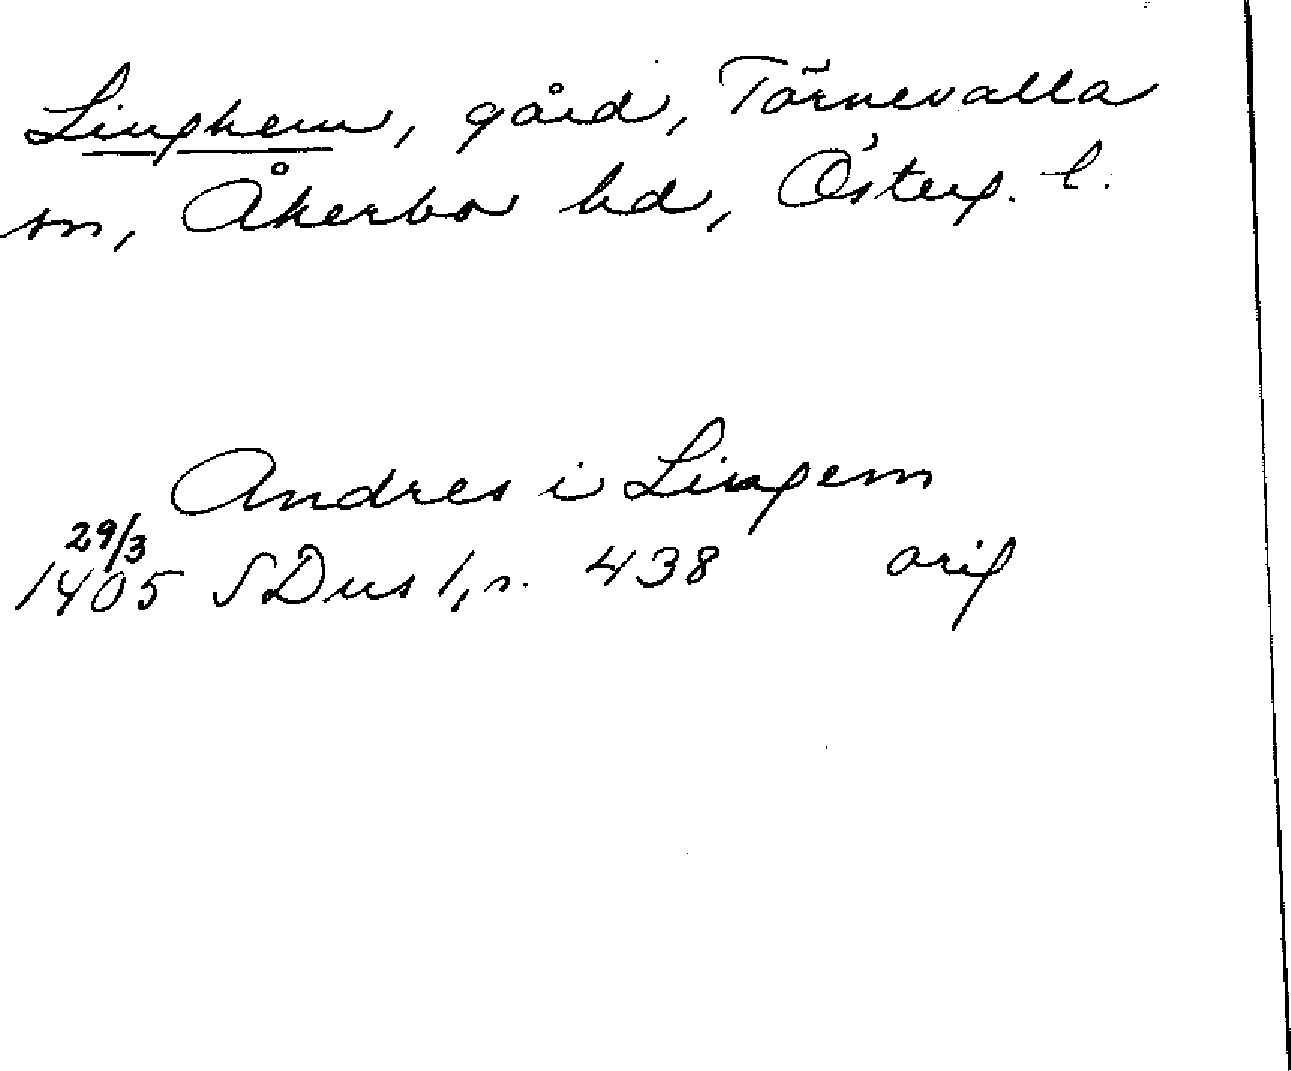 Linghem, gård, Törnevalla
sn, Åkerbo hd, Österg. l.
Andres i Lingem
29/3
1405 SDns 1, s. 438 orig